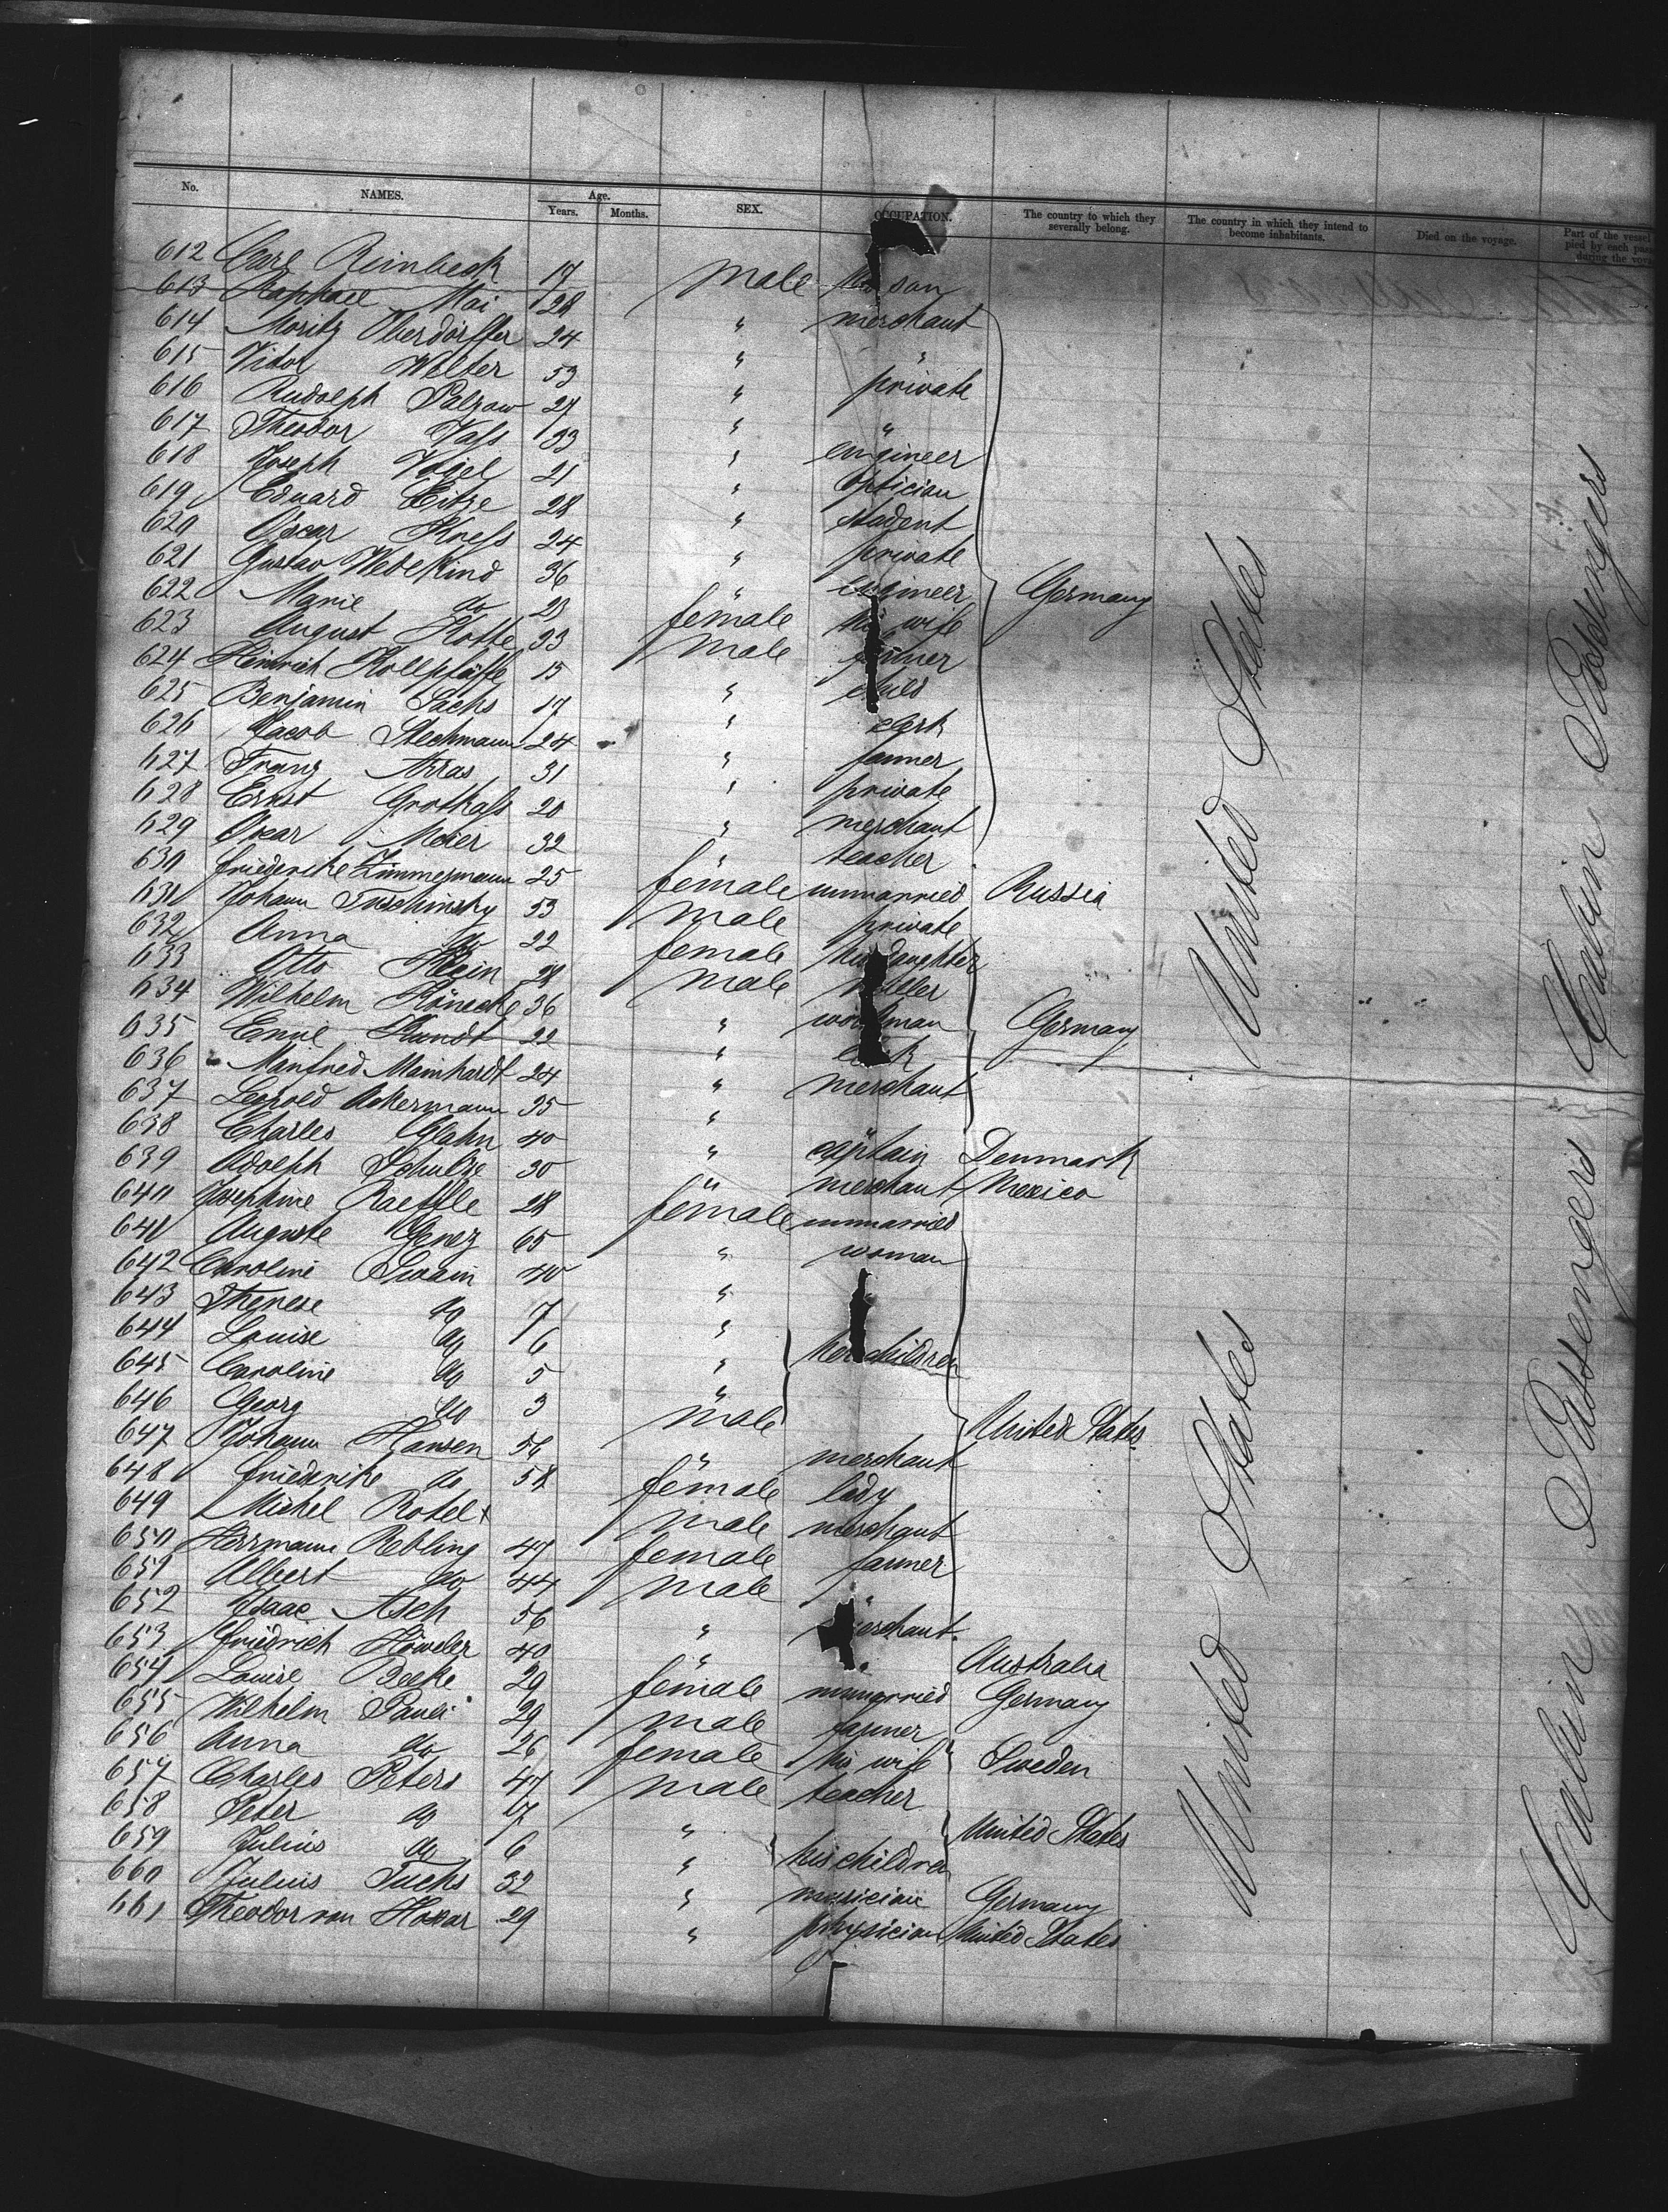 No. NAMES. Age. Years. Months. SEX. OCCUPATION. The country to which they severally belong. The country in which they intend to become inhabitants. Died on the voyage. Part of the vessel pied by each pas during the voya
612 Carl Reinbeck 17 male son
613 Raphael Mai 28 " merchant
614 Moritz Oberdörffer 24 " "
615 Victor Wolter 53 " private
616 Rudolph Palzow 27 " "
617 Theodor Vass 33 " engineer
618 Joseph Vogel 21 " optician
619 Eduard Eitze 28 " student
620 Oscar Kness 24 " private
621 Gustav Wedekind 36 " engineer Germany
622 Marie do 23 female his wife
623 August Kotte 33 male farmer
624 Heinrich Kollpfäffe 15 " child
625 Benjamin Sachs 17 " clerk
626 Jacob Stechmann 24 " farmer
627 Franz Arras 31 " private
628 Ernst Grothass 20 " merchant
629 Oscar Meier 32 " teacher
630 Friedericke Zimmermann 25 female unmarried Russia
631 Johann Tuschinsky 53 male private
632 Anna do 22 female his daughter
633 Otto Klein 28 male miller
634 Wilhelm Könecke 36 " workman Germany
635 Emil Kundt 22 "
636 Manfred Mainhardt 24 " merchant
637 Leopold Ackermann 35 " "
638 Charles Glahn 40 " captain Denmark
639 Adolph Schultze 30 " merchant Mexico
640 Josephine Raeffle 28 female unmarried
641 Auguste Genez 65 " woman
642 Caroline Swain 40 "
643 Therese do 7 "
644 Louise do 6 " her children
645 Caroline do 5 "
646 Georg do 3 male United States
647 Johann Hansen 56 " merchant
648 Friederike do 58 female lady
649 Michel Rotels male merchant
650 Herrmann Rebling 47 female farmer
651 Albert do 44 male "
652 Isaac Asch 56 " merchant
653 Friedrich Höweler 40 " " Australia
654 Louise Beeke 29 female unmarried Germany
655 Wilhelm Pauli 29 male farmer
656 Anna do 26 female his wife Sweden
657 Charles Peters 47 male teacher
658 Peter do 7 " United States
659 Julius do 6 " his children
660 Julius Fuchs 32 " musician Germany
661 Theodor von Hoxar 29 " physician United States
United States
United States
Cabin Passengers
Cabin Passengers